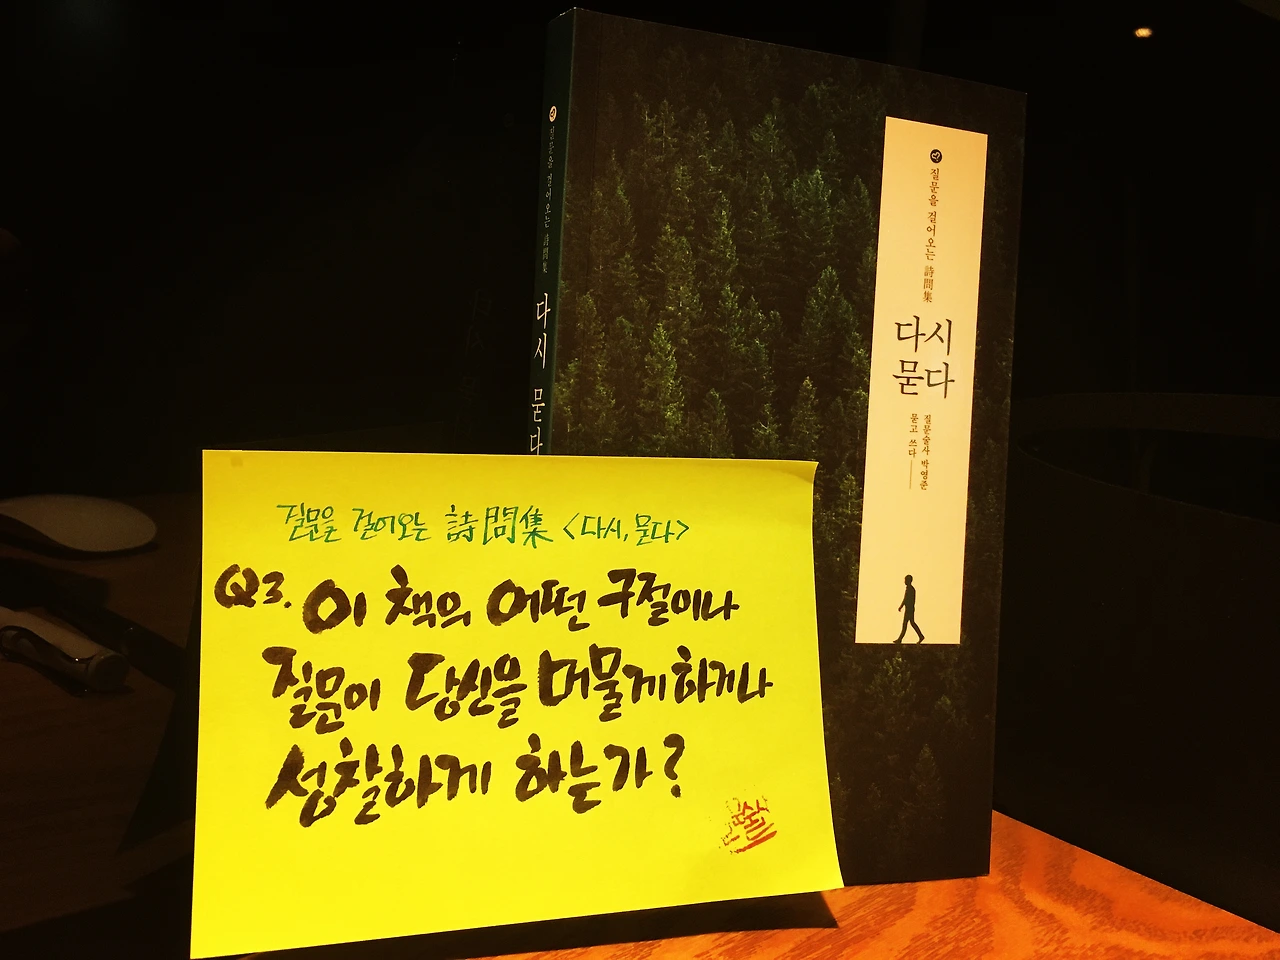 질문을 걸어오는 詩問集
다시 묻다
질문을 걸어오는 詩問集
다시
묻다
질문술사 박영준
묻고 쓰다
질문을 걸어오는 詩問集 <다시, 묻다>
Q3. 이 책의 어떤 구절이나
질문이 당신을 머물게하거나
성찰하게 하는가?